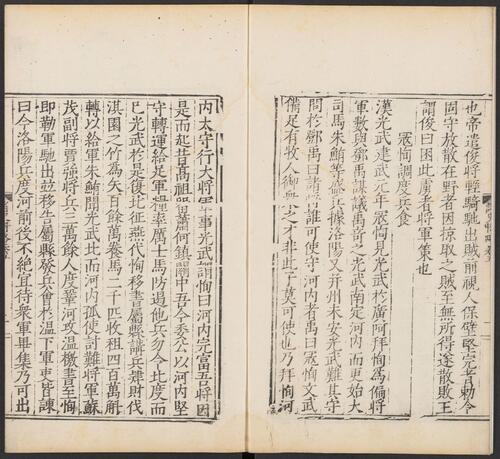 也帝遣俊將輕騎馳出賊前視人保壁堅完者勅令
固守放散在野者因掠取之賊至無所得遂散敗王
謂俊曰困此虜者將軍策也
寇恂調度兵食
漢光武建武元年寇恂見光武於廣阿拜恂爲偏將
軍數與鄧禹謀議禹奇之光武南定河内而更始大
司馬朱鮪等盛兵據洛陽又并州未安光武難其守
問於鄧禹曰諸將誰可使守河内者禹曰寇恂文武
備足有牧人御衆之才非此子莫可使也乃拜恂河
内太守行大將軍事光武謂恂曰河内完富吾將因
是而起昔高祖留蕭何鎮關中吾今委公以河内堅
守轉運給足軍糧率厲士馬防遏他兵勿令北度而
已光武於是復北征燕代恂移書屬縣講兵肄財伐
淇園之竹爲矢百餘萬養馬二千匹收租四百萬斛
轉以給軍朱鮪聞光武北而河内孤使討難將軍蘇
茂副將賈強將兵三萬餘人度鞏河攻温檄書至恂
即勒軍馳出並移告屬縣發兵會於温下軍吏皆諫
曰今洛陽兵度河前後不絶宜待衆軍畢集乃可出